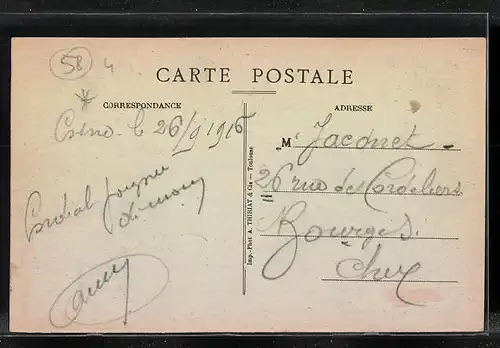 58 4
CARTE POSTALE
CORRESPONDANCE
ADRESSE
le 26/9 1916
M Jacquet
26 rue des Cordeliers
Bourges
Cher
Cordial
Imp.-Phot A. THIRIAT & Cie - Toulouse